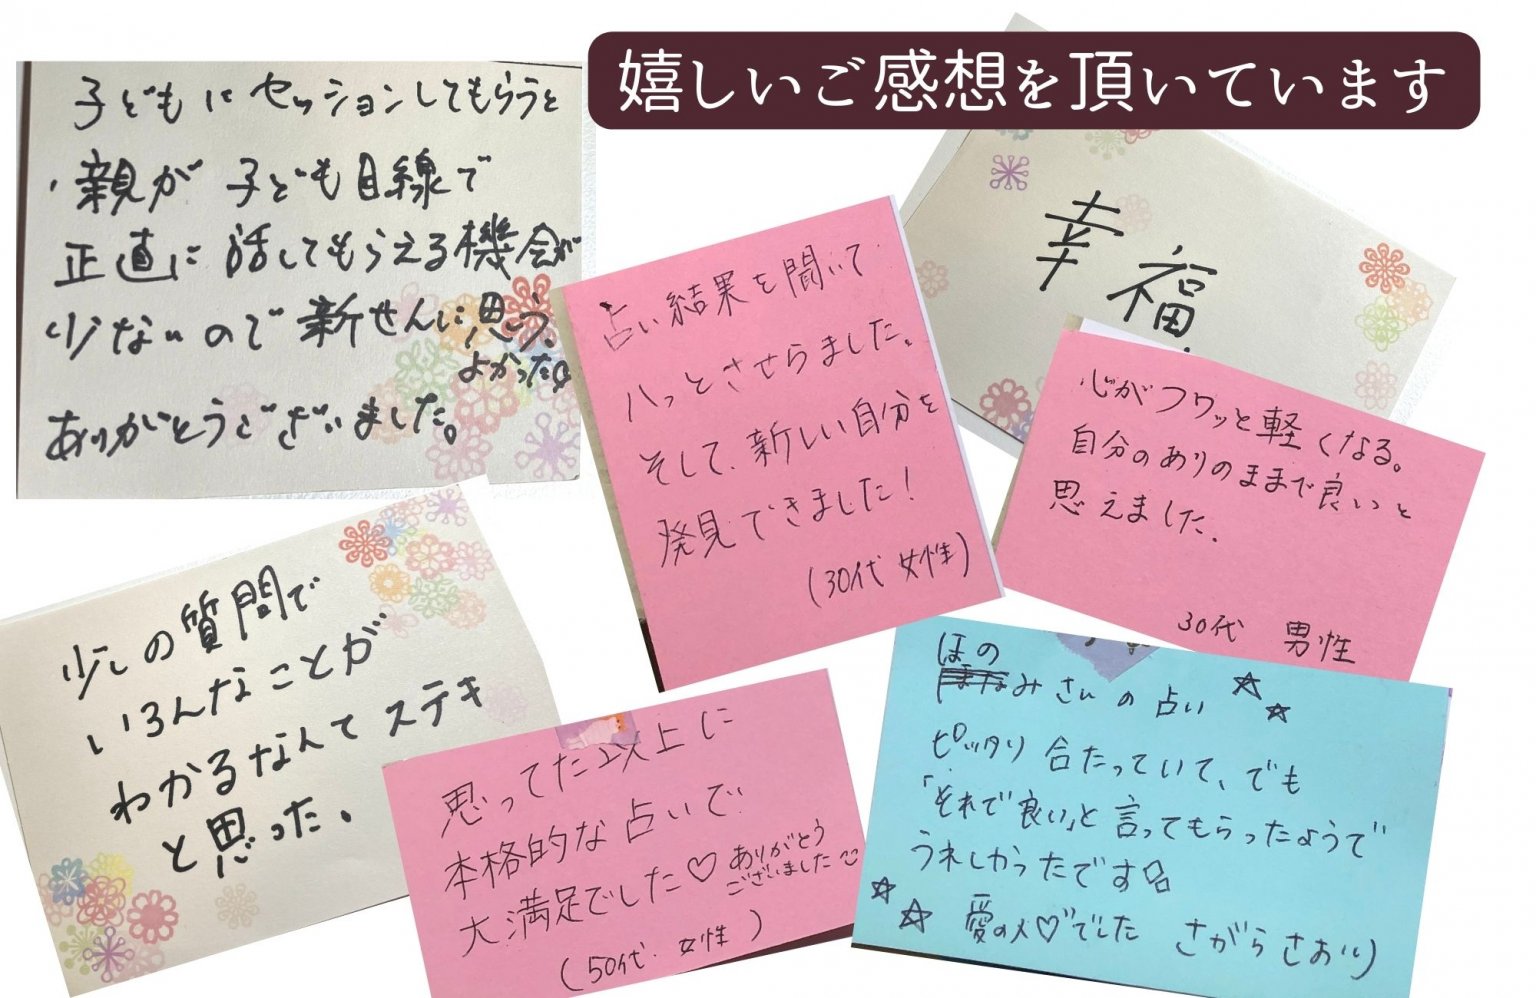 嬉しいご感想を頂いています
子どもにセッションしてもらうと
親が子ども目線で
正直に話してもらえる機会が
少ないので新せんに思う。
よかった
ありがとうございました。
占い結果を聞いて
ハッとさせらました。
そして、新しい自分を
発見できました!
(30代 女性)
幸福.
心がフワッと軽くなる。
自分のありのままで良いと
思えました.
30代 男性
少しの質問で
いろんなことが
わかるなんてステキ
と思った。
思ってた以上に
本格的な占いで
大満足でした♡ ありがとう
ございました
(50代. 女性)
ほの
みさんの占い ☆☆
ピッタリ合たっていて、でも
「それで良い」と言ってもらったようで
うれしかったです
☆☆ 愛の人♡でした さがらさおり)